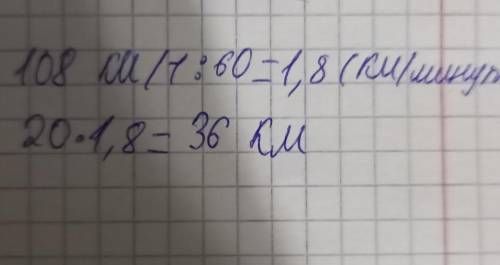 108 км/ч:60=1,8(км/минут
20·1,8= 36 км